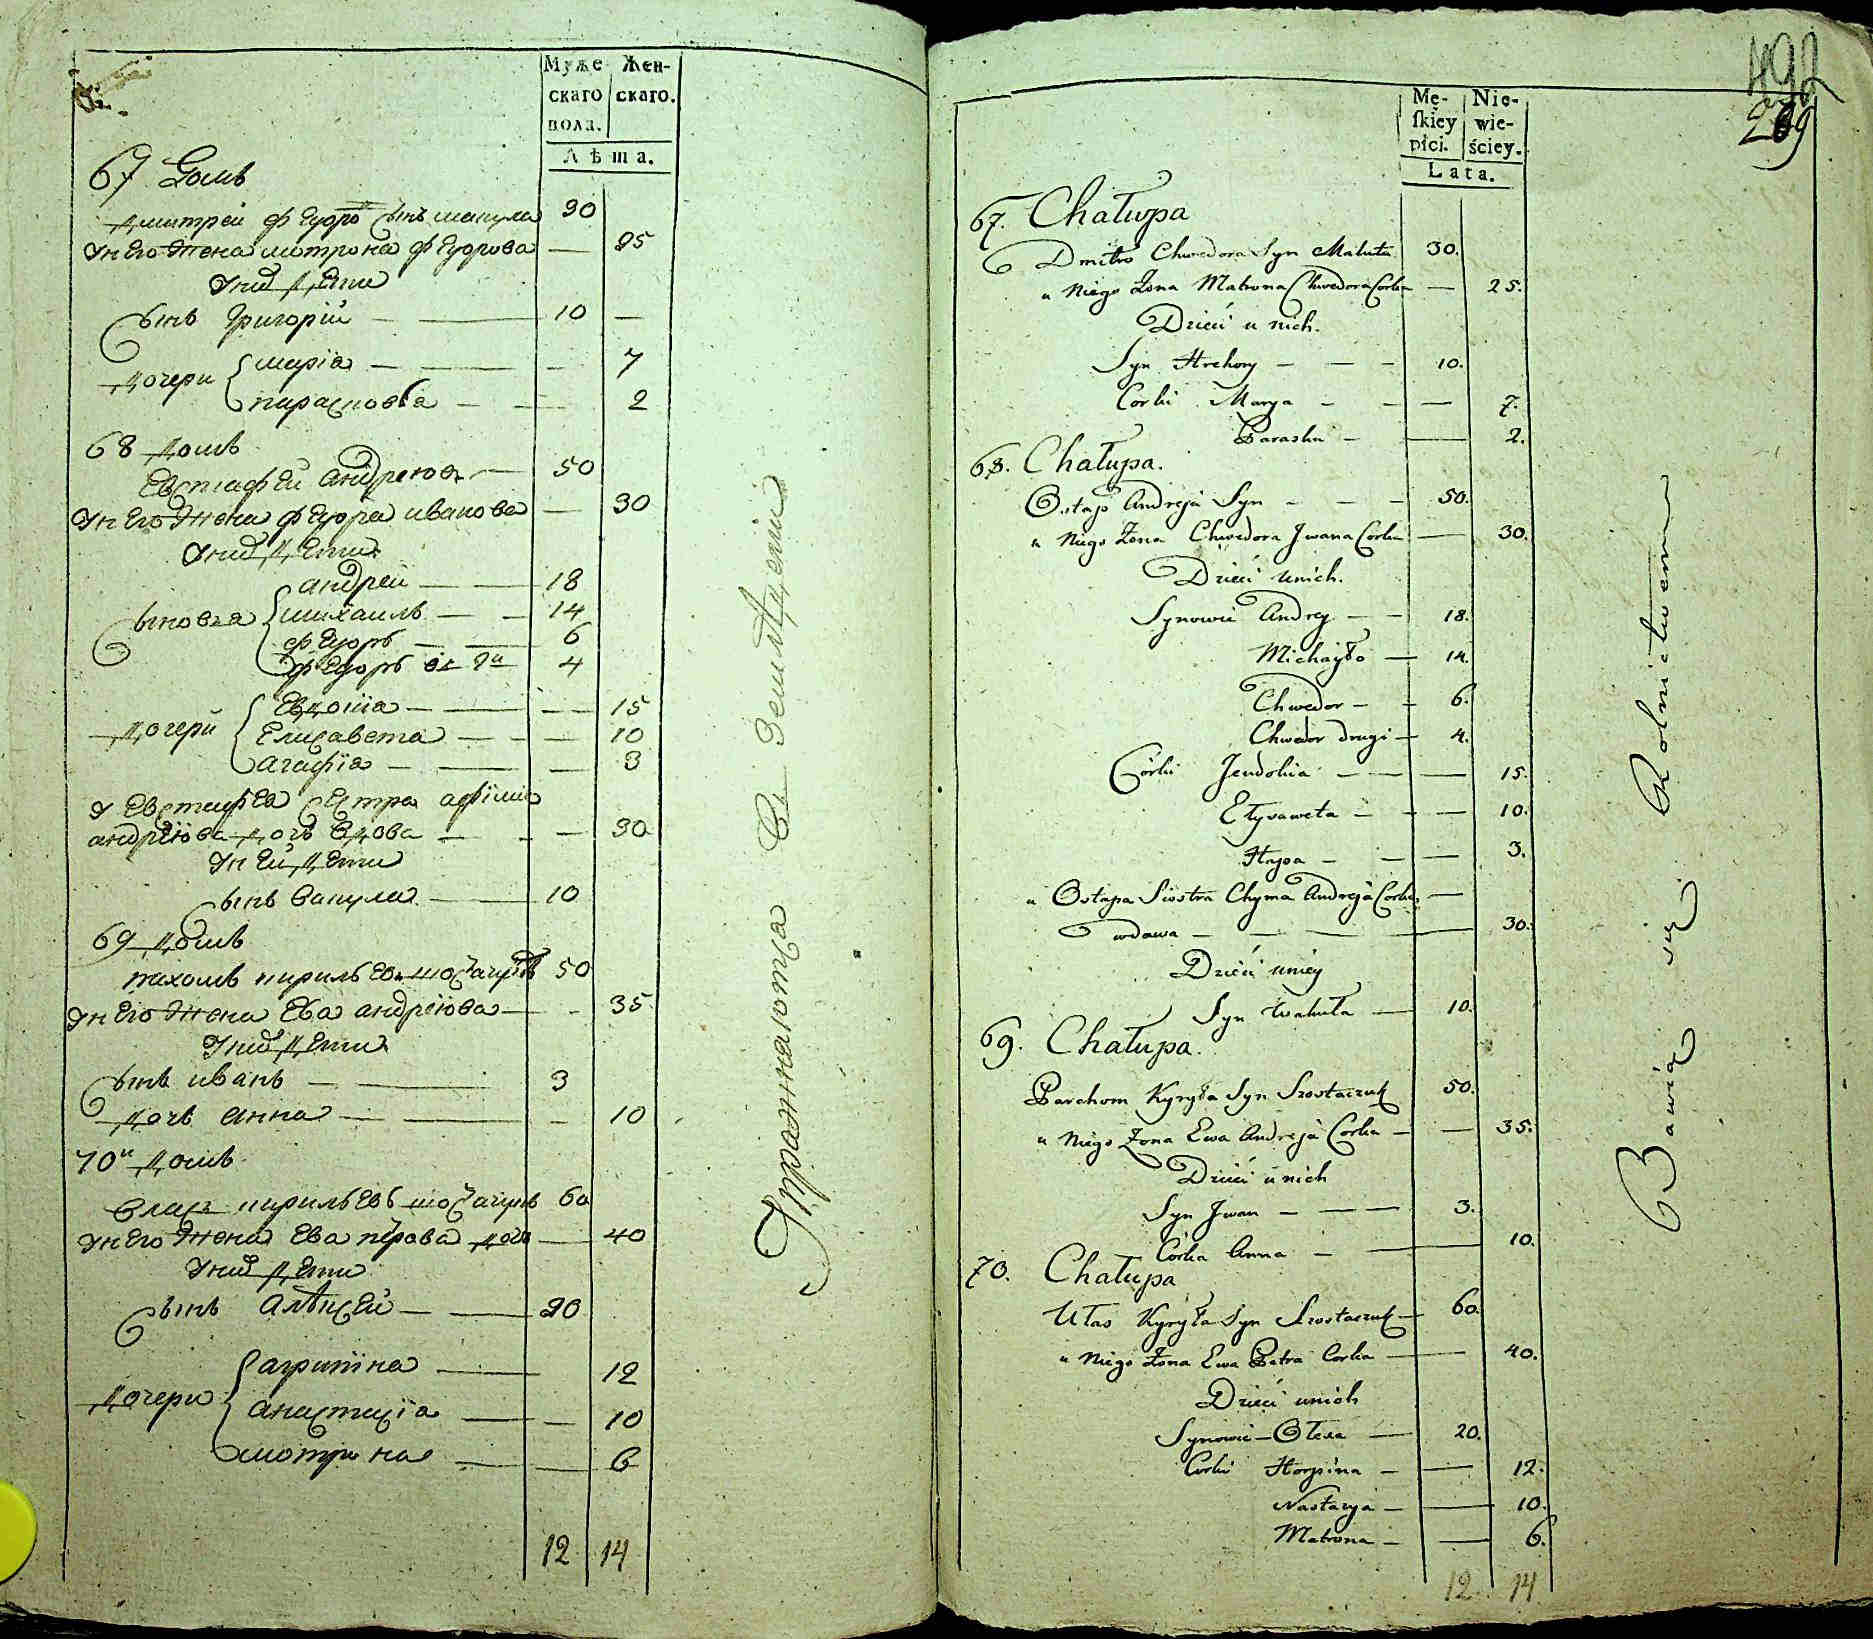 Муже Жен-
скаго скаго.
пола.
Лѣта.
67 Домъ
Дмитрей Федоро Сынъ Макула 30
У Него Жена Мотрона Федорова — 25
У них Дети
Сынъ Григорий — — 10 —
Дочери Марїа — — 7
Парасковѣа — — 2
68 Домъ
Евстафей Андреювъ — 50
У Него Жена Федора Иванова — 30
У них Дети
Сыновья Андрей — 18
Михаилъ — — 14
Федоръ — — 6
Федоръ 2й 4
Дочери Евдокїа — — — 15
Елисавета — — — 10
Агафїа — — — 3
У Евстафеа Сестра Афїмиа
Андрѣюва Дочь Вдова — — — 30
У Ней Дети
Сынъ Вакула — 10
69 Домъ
Пахомъ Кирильевъ Шостачукъ 50
У Него Жена Ева Андрѣюва — — 35
У них Дети
Сынъ Иванъ — — 3
Дочь Анна — — — 10
70й Домъ
Власъ Кирильевъ Шостачукъ 60
У Него Жена Ева Петрова Дочь — 40
У них Дети
Сынъ Алѣксей — — 20
Дочери Агрипина — 12
Анастасїа — — 10
Мотрона — — 6
12 14
Упражнаютца Въ Землѣделїи
492
269
Mę- Nie-
ſkiey wie-
płci. ściey.
Lata.
67. Chałupa
Dmitro Chwedora Syn Makuła 30.
u Niego Żona Matrona Chwedora Corka — 25.
Dzieci u nich.
Syn Hrehory — — — 10.
Corki Marya — — — 7.
Paraska — — 2.
68. Chałupa.
Ostap Andreja Syn — — — 50.
u Niego Żona Chwedora Jwana Corka — 30.
Dzieci unich.
Synowie Andrey — — 18.
Michayło — 14.
Chwedor — — 6.
Chwedor drugi — 4.
Córki Jeudokia — — — 15.
Ełysaweta — — — 10.
Hapa — — — 3.
u Ostapa Siostra Chyma Andreja Corka —
wdowa — — — — 30.
Dzieci uniey
Syn Wakuła — 10.
69. Chałupa.
Parchom Kyryła Syn Szostaczuk 50.
u Niego Żona Ewa Andreja Corka — — 35.
Dzieci u nich
Syn Jwan — — — 3.
Córka Anna — — 10.
70. Chałupa
Ułas Kyryła Syn Szostaczuk — 60.
u Niego Żona Ewa Petra Corka — — 40.
Dzieci unich
Synowie — Ołexa — 20.
Corki Horpina — — 12.
Nastazya — — 10.
Matrona — — 6.
12. 14
Bawią się Rolnictwem